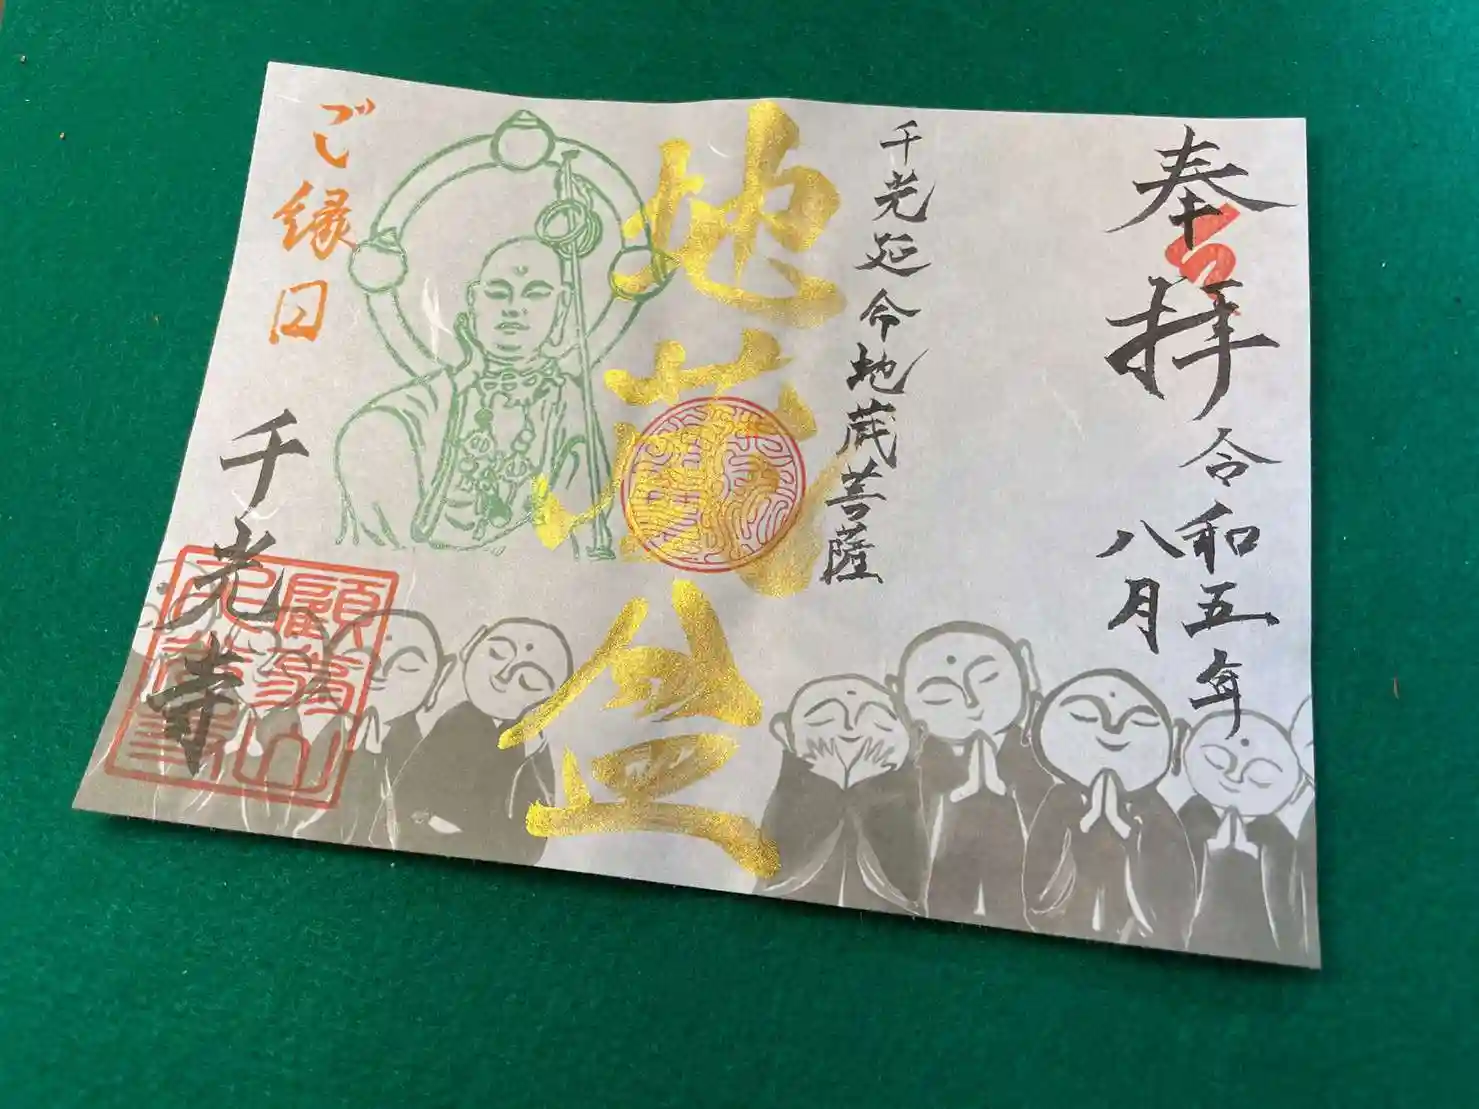 奉拝
令和五年
八月
千光延命地蔵菩薩
地蔵盆
ご縁日
千光寺